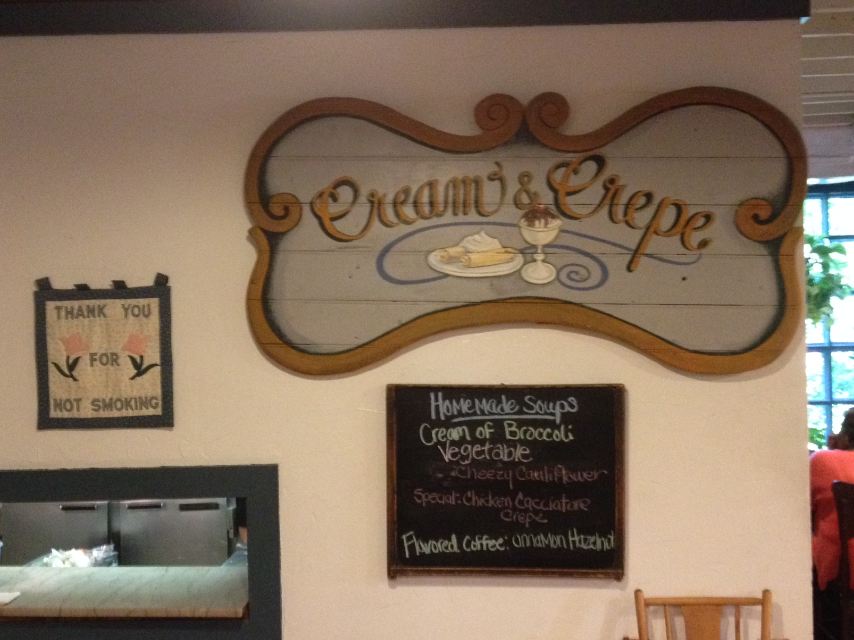 Cream & Crepe
THANK YOU
FOR
NOT SMOKING
Homemade Soups
Cream of Broccoli
Vegetable
Cheezy Cauliflower
Special: Chicken Cacciatore
Crepe
Flavored Coffee: innamon Hazelnut